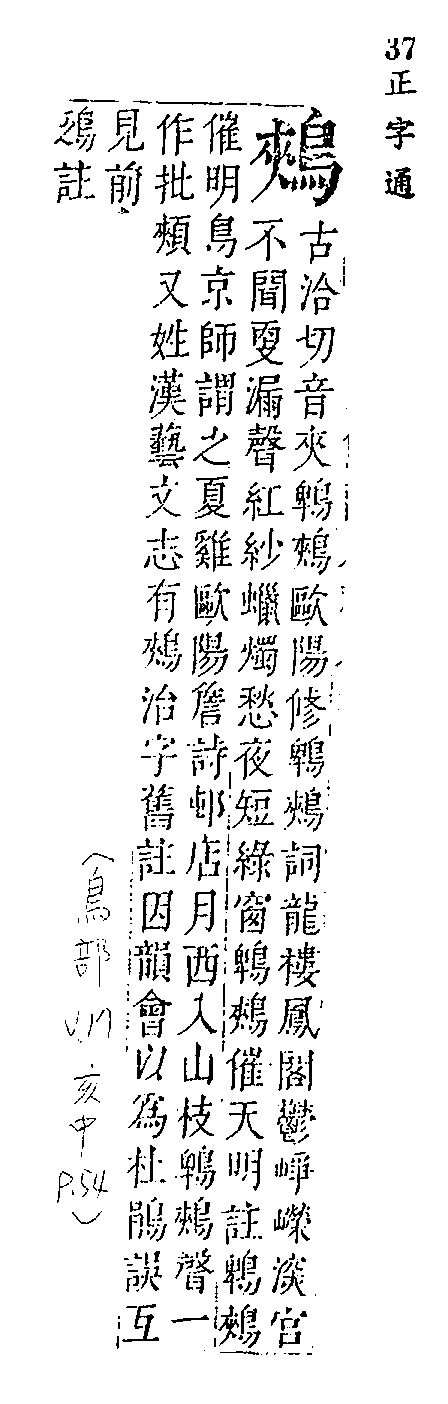 37正字通
鵊
古洽切音夾鵯鵊歐陽修鵯鵊詞龍樓鳳閣鬱崢嶸深宮
不聞更漏聲紅紗蠟燭愁夜短綠窗鵯鵊催天明註鵯鵊
催明鳥京師謂之夏雞歐陽詹詩邨店月西入山枝鵯鵊聲一
作批頰又姓漢藝文志有鵊治字舊註因韻會以爲杜鵑誤互
見前
註
(鳥部 V.17 亥中 P.54)